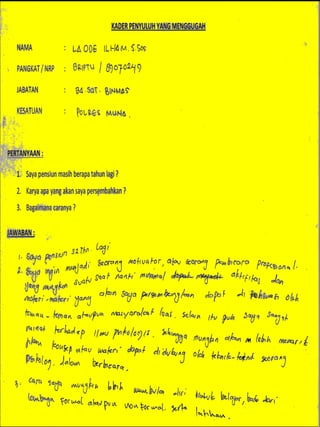 KADER PENYULUH YANG MENGGUGAH
NAMA : LA ODE ILHAM. S.Sos
PANGKAT / NRP : BRIPTU / 89070249
JABATAN : BA SAT. BINMAS
KESATUAN : POLRES MUNA.
PERTANYAAN :
1. Saya pensiun masih berapa tahun lagi ?
2. Karya apa yang akan saya persembahkan ?
3. Bagaimana caranya ?
JAWABAN :
1. Saya pensiun 32 Thn. lagi
2. Saya ingin menjadi seorang motivator, atau seorang pembicara profesional.
yang mungkin suatu saat nanti minimal aktifitas dan
materi-materi yang akan saya persembahkan dapat di oleh
teman-teman ataupun masyarakat luas. Selain itu pula saya sangat
minat terhadap ilmu Sehingga mungkin akan lebih menarik
jikan konsep atau materi dapat didukung oleh teknik-teknik seorang
dalam berbicara.
3. Cara saya mungkin lebih diri untuk belajar, baik dari
lembaga Formal ataupun non Formal. serta latihan.